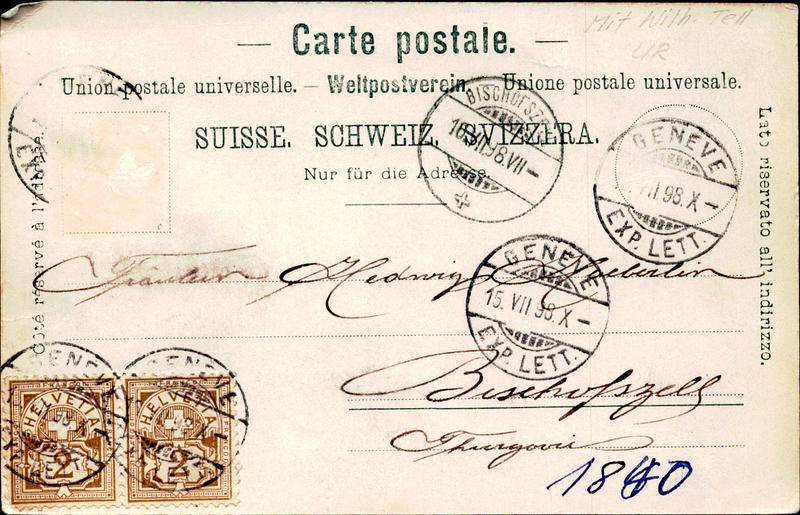 Mit Wilh. Tell
UR
— Carte postale. —
Union postale universelle. — Weltpostverein — Unione postale universale.
SUISSE. SCHWEIZ. SVIZZERA.
Nur für die Adresse.
Côté réservé à l'adresse.
Lato riservato all' indirizzo.
BISCHOFSZ
16.VII.98.VII-
GENEVE
VII 98.X-
EXP. LETT.
GENEVE
15.VII 98.X-
EXP. LETT.
Fräulein Hedwig
Bischofszell
Thurgovie
1840
GENEVE
GENEVE
HELVETIA
2
HELVETIA
2